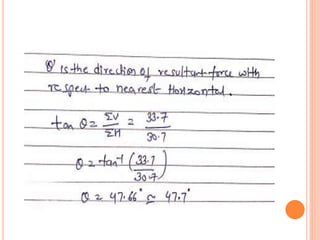 θ' is the direction of resultant force with
respect to nearest Horizontal.
tan θ = ΣV/ΣH = 33.7/30.7
θ = tan⁻¹ (33.7/30.7)
θ = 47.66° ≃ 47.7°